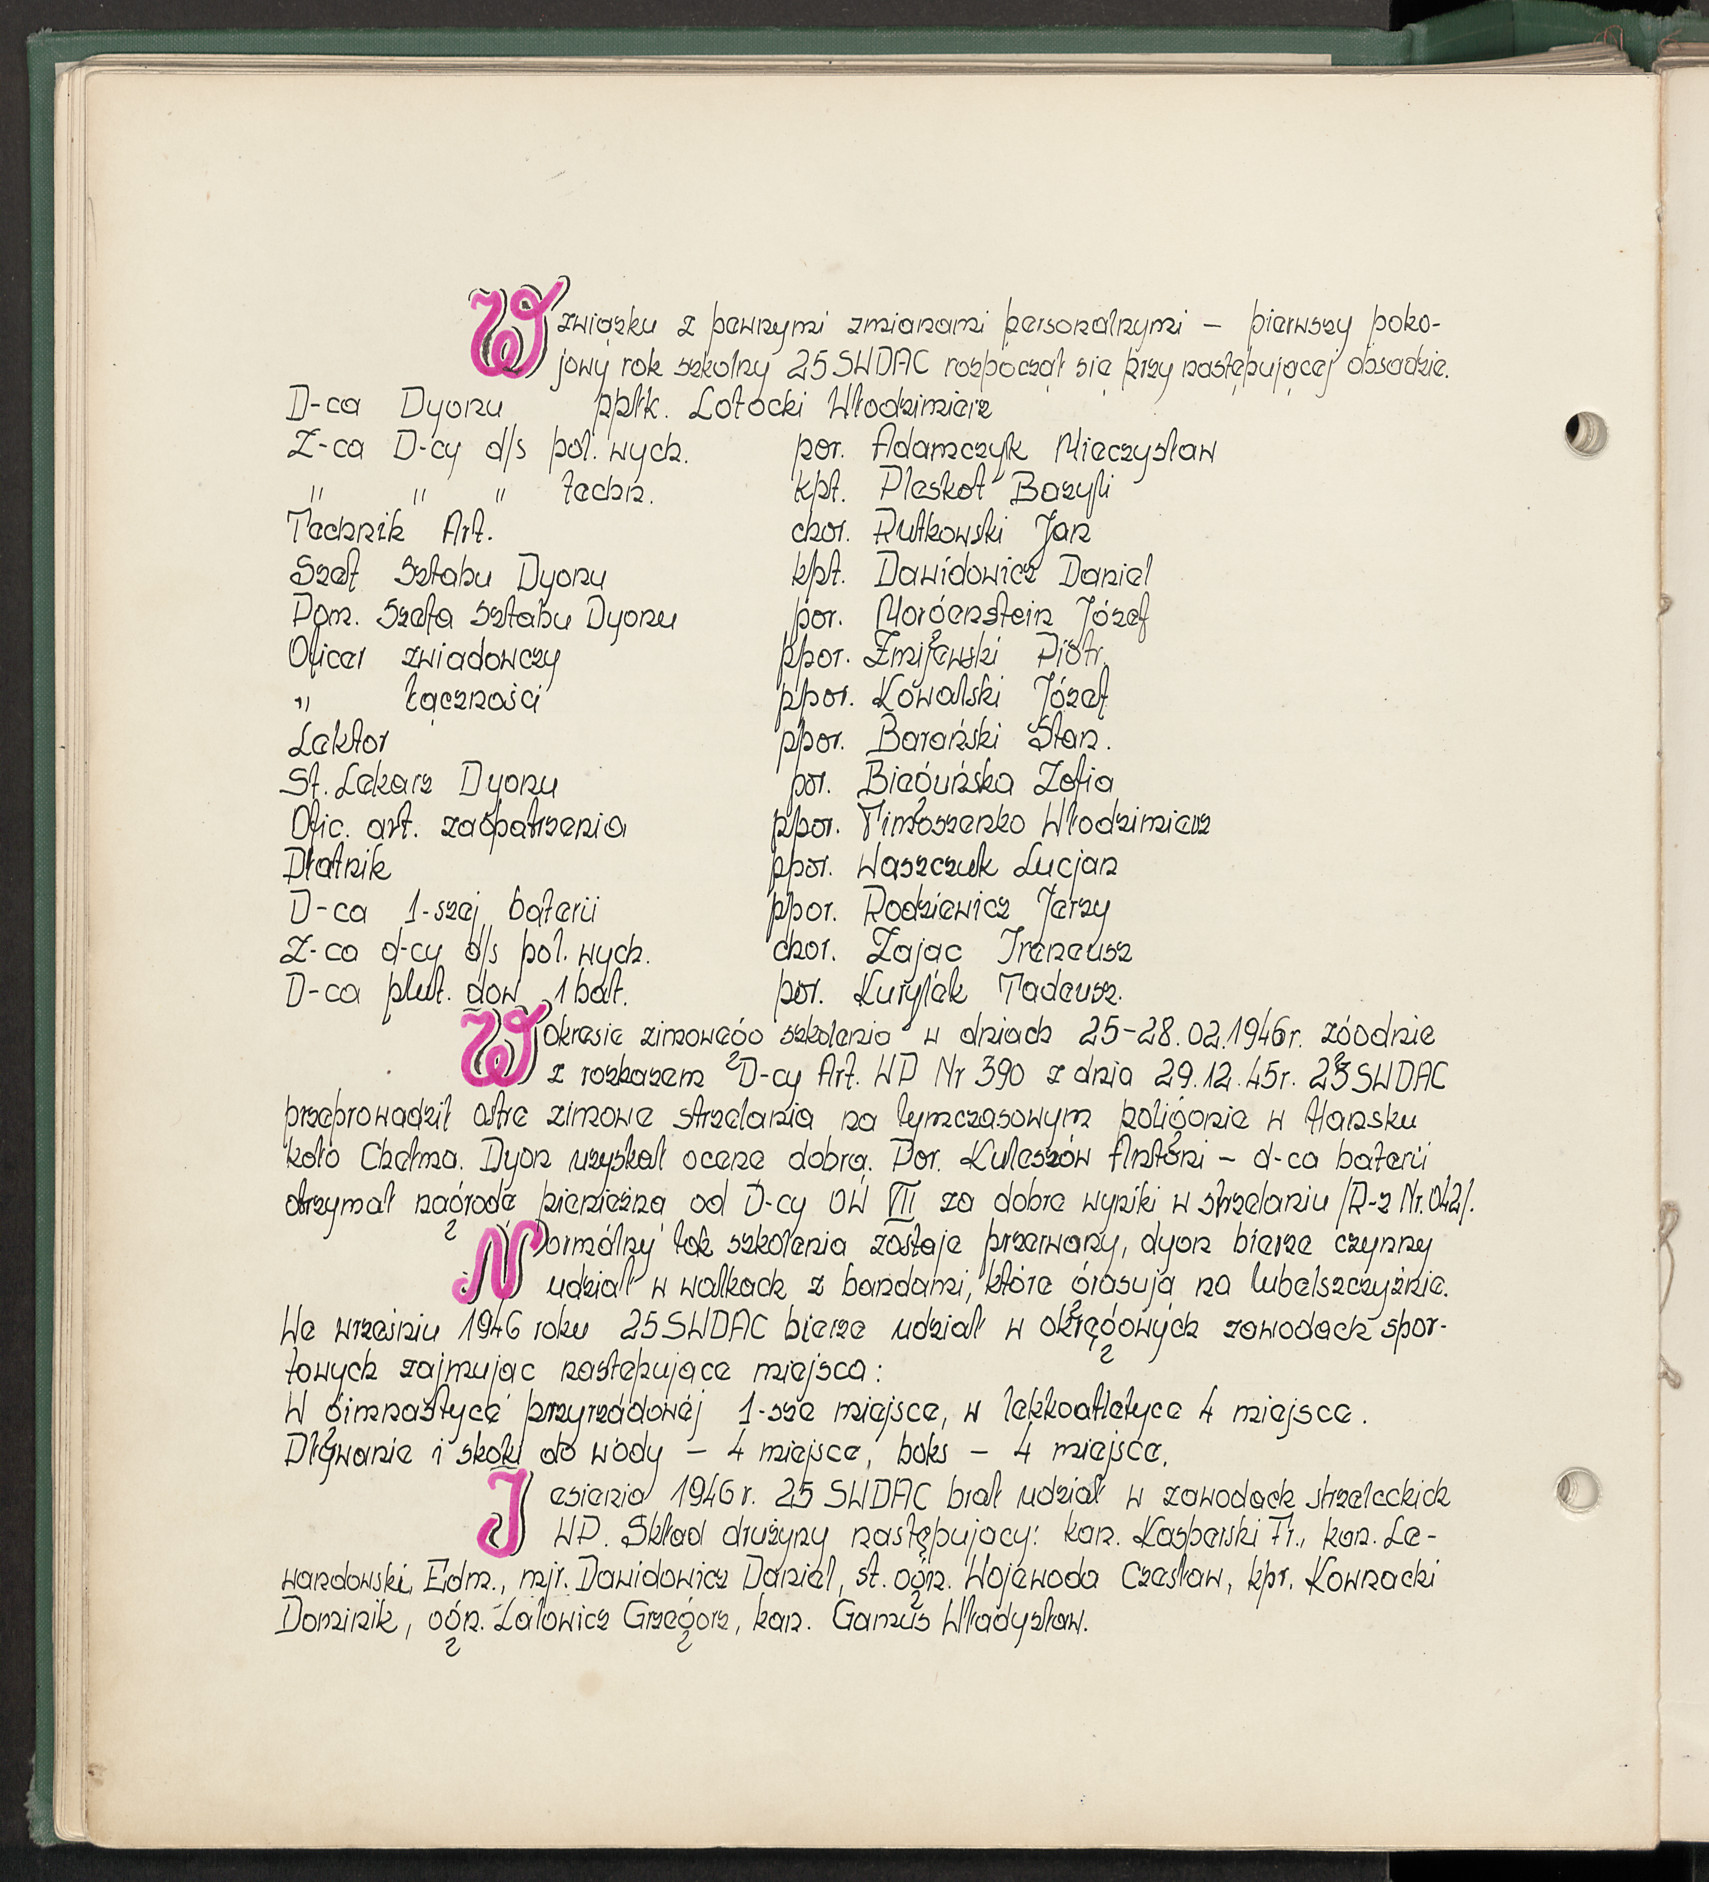 W związku z pewnymi zmianami personalnymi – pierwszy poko-
jowy rok szkolny 25 SWDAC rozpoczął się przy następującej obsadzie.
D-ca Dyonu ppłk. Łotocki Włodzimierz
Z-ca D-cy d/s pol. wych. por. Adamczyk Mieczysław
" " " techn. kpt. Pleskot Bazyli
Technik Art. chor. Rutkowski Jan
Szef Sztabu Dyonu kpt. Dawidowicz Daniel
Pom. Szefa Sztabu Dyonu por. Morgenstein Józef
Oficer zwiadowczy ppor. Żmijewski Piotr.
" łączności ppor. Kowalski Józef
Lektor ppor. Barański Stan.
St. Lekarz Dyonu por. Bieguńska Zofia
Ofic. art. zaopatrzenia ppor. Timoszenko Włodzimierz
Płatnik ppor. Waszczuk Lucjan
D-ca 1-szej baterii ppor. Rodziewicz Jerzy
Z-ca d-cy d/s pol. wych. chor. Zając Ireneusz
D-ca plut. dow 1 bat. por. Kuryłek Tadeusz.
W okresie zimowego szkolenia w dniach 25-28.02.1946r. zgodnie
z rozkazem D-cy Art. WP Nr 390 z dnia 29.12.45r. 25 SWDAC
przeprowadził ostre zimowe strzelania na tymczasowym poligonie w Hańsku
koło Chełma. Dyon uzyskał ocenę dobrą. Por. Kuleszów Antoni – d-ca baterii
otrzymał nagrodę pieniężną od D-cy OW VII za dobre wyniki w strzelaniu /R-z Nr. 042/.
Normalny tok szkolenia zostaje przerwany, dyon bierze czynny
udział w walkach z bandami, które grasują na lubelszczyźnie.
We wrześniu 1946 roku 25 SWDAC bierze udział w okręgowych zawodach spor-
towych zajmując następujące miejsca:
W gimnastyce przyrządowej 1-sze miejsce, w lekkoatletyce 4 miejsce.
Pływanie i skoki do wody – 4 miejsce, boks – 4 miejsce.
Jesienią 1946 r. 25 SWDAC brał udział w zawodach strzeleckich
WP. Skład drużyny następujący: kan. Kasperski Fr., kan. Le-
wandowski Edm., mjr. Dawidowicz Daniel, st. ogn. Wojewoda Czesław, kpr. Kownacki
Dominik, ogn. Łatowicz Grzegorz, kan. Gamzus Władysław.